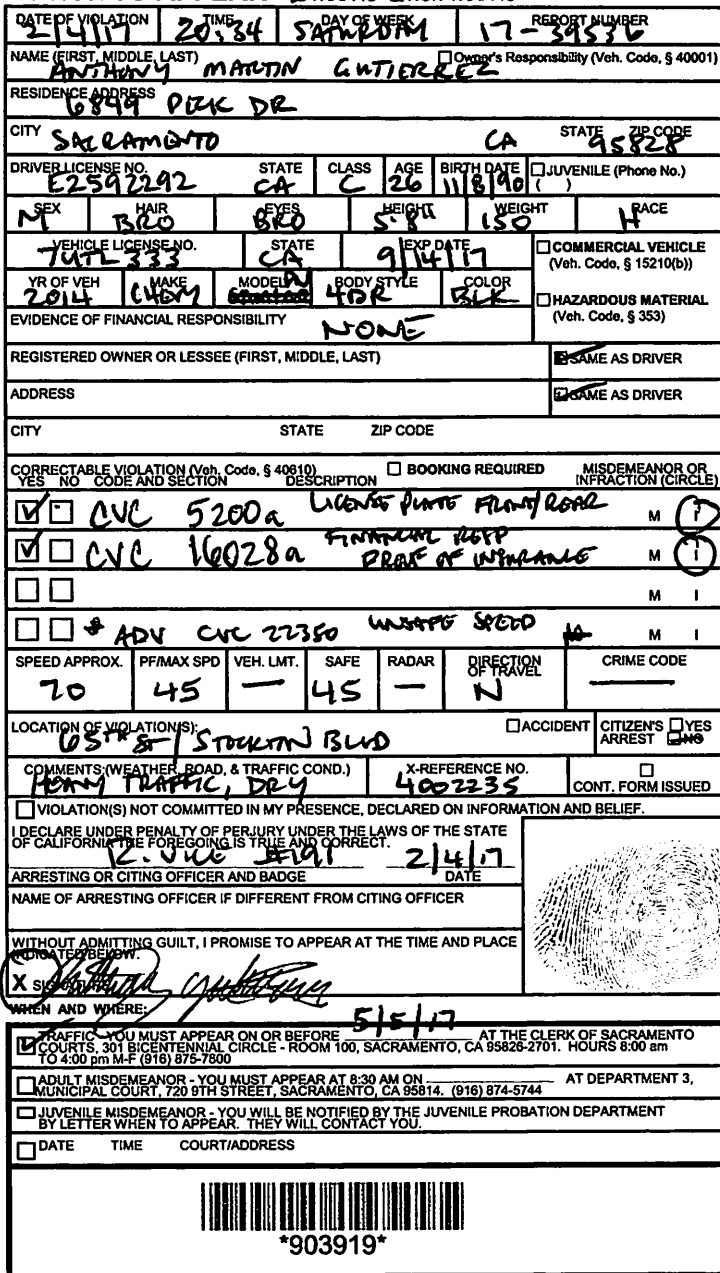 DATE OF VIOLATION TIME DAY OF WEEK REPORT NUMBER
2/4/17 20:34 SATURDAY 17-39536
NAME (FIRST, MIDDLE, LAST) Owner's Responsibility (Veh. Code, § 40001)
ANTHONY MARTIN GUTIERREZ
RESIDENCE ADDRESS
6849 PECK DR
CITY STATE ZIP CODE
SACRAMENTO CA 95828
DRIVER LICENSE NO. STATE CLASS AGE BIRTH DATE JUVENILE (Phone No.)
E2592292 CA C 26 11/8/90 ( )
SEX HAIR EYES HEIGHT WEIGHT RACE
M BRO BRO 5-8 150 H
VEHICLE LICENSE NO. STATE EXP DATE COMMERCIAL VEHICLE
7UTL333 CA 9/14/17 (Veh. Code, § 15210(b))
YR OF VEH MAKE MODEL BODY STYLE COLOR HAZARDOUS MATERIAL
2014 4DR BLK (Veh. Code, § 353)
EVIDENCE OF FINANCIAL RESPONSIBILITY
NONE
REGISTERED OWNER OR LESSEE (FIRST, MIDDLE, LAST) SAME AS DRIVER
ADDRESS SAME AS DRIVER
CITY STATE ZIP CODE
CORRECTABLE VIOLATION (Veh. Code, § 40610) BOOKING REQUIRED MISDEMEANOR OR
YES NO CODE AND SECTION DESCRIPTION INFRACTION (CIRCLE)
CVC 5200a LICENSE PLATE FRONT/REAR M I
CVC 16028a FINANCIAL RESP PROOF OF INSURANCE M I
M I
* ADV CVC 22350 UNSAFE SPEED M I
SPEED APPROX. PF/MAX SPD VEH. LMT. SAFE RADAR DIRECTION OF TRAVEL CRIME CODE
70 45 — 45 — N —
LOCATION OF VIOLATION(S): ACCIDENT CITIZEN'S ARREST YES NO
65TH ST / STOCKTON BLVD
COMMENTS: (WEATHER, ROAD, & TRAFFIC COND.) X-REFERENCE NO.
HEAVY TRAFFIC, DRY 4002235 CONT. FORM ISSUED
VIOLATION(S) NOT COMMITTED IN MY PRESENCE, DECLARED ON INFORMATION AND BELIEF.
I DECLARE UNDER PENALTY OF PERJURY UNDER THE LAWS OF THE STATE
OF CALIFORNIA THE FOREGOING IS TRUE AND CORRECT.
R. VICE #191 2/4/17
ARRESTING OR CITING OFFICER AND BADGE DATE
NAME OF ARRESTING OFFICER IF DIFFERENT FROM CITING OFFICER
WITHOUT ADMITTING GUILT, I PROMISE TO APPEAR AT THE TIME AND PLACE
INDICATED BELOW.
X
WHEN AND WHERE:
5/5/17
TRAFFIC - YOU MUST APPEAR ON OR BEFORE AT THE CLERK OF SACRAMENTO
COURTS, 301 BICENTENNIAL CIRCLE - ROOM 100, SACRAMENTO, CA 95826-2701. HOURS 8:00 am
TO 4:00 pm M-F (916) 875-7800
ADULT MISDEMEANOR - YOU MUST APPEAR AT 8:30 AM ON AT DEPARTMENT 3,
MUNICIPAL COURT, 720 9TH STREET, SACRAMENTO, CA 95814. (916) 874-5744
JUVENILE MISDEMEANOR - YOU WILL BE NOTIFIED BY THE JUVENILE PROBATION DEPARTMENT
BY LETTER WHEN TO APPEAR. THEY WILL CONTACT YOU.
DATE TIME COURT/ADDRESS
*903919*